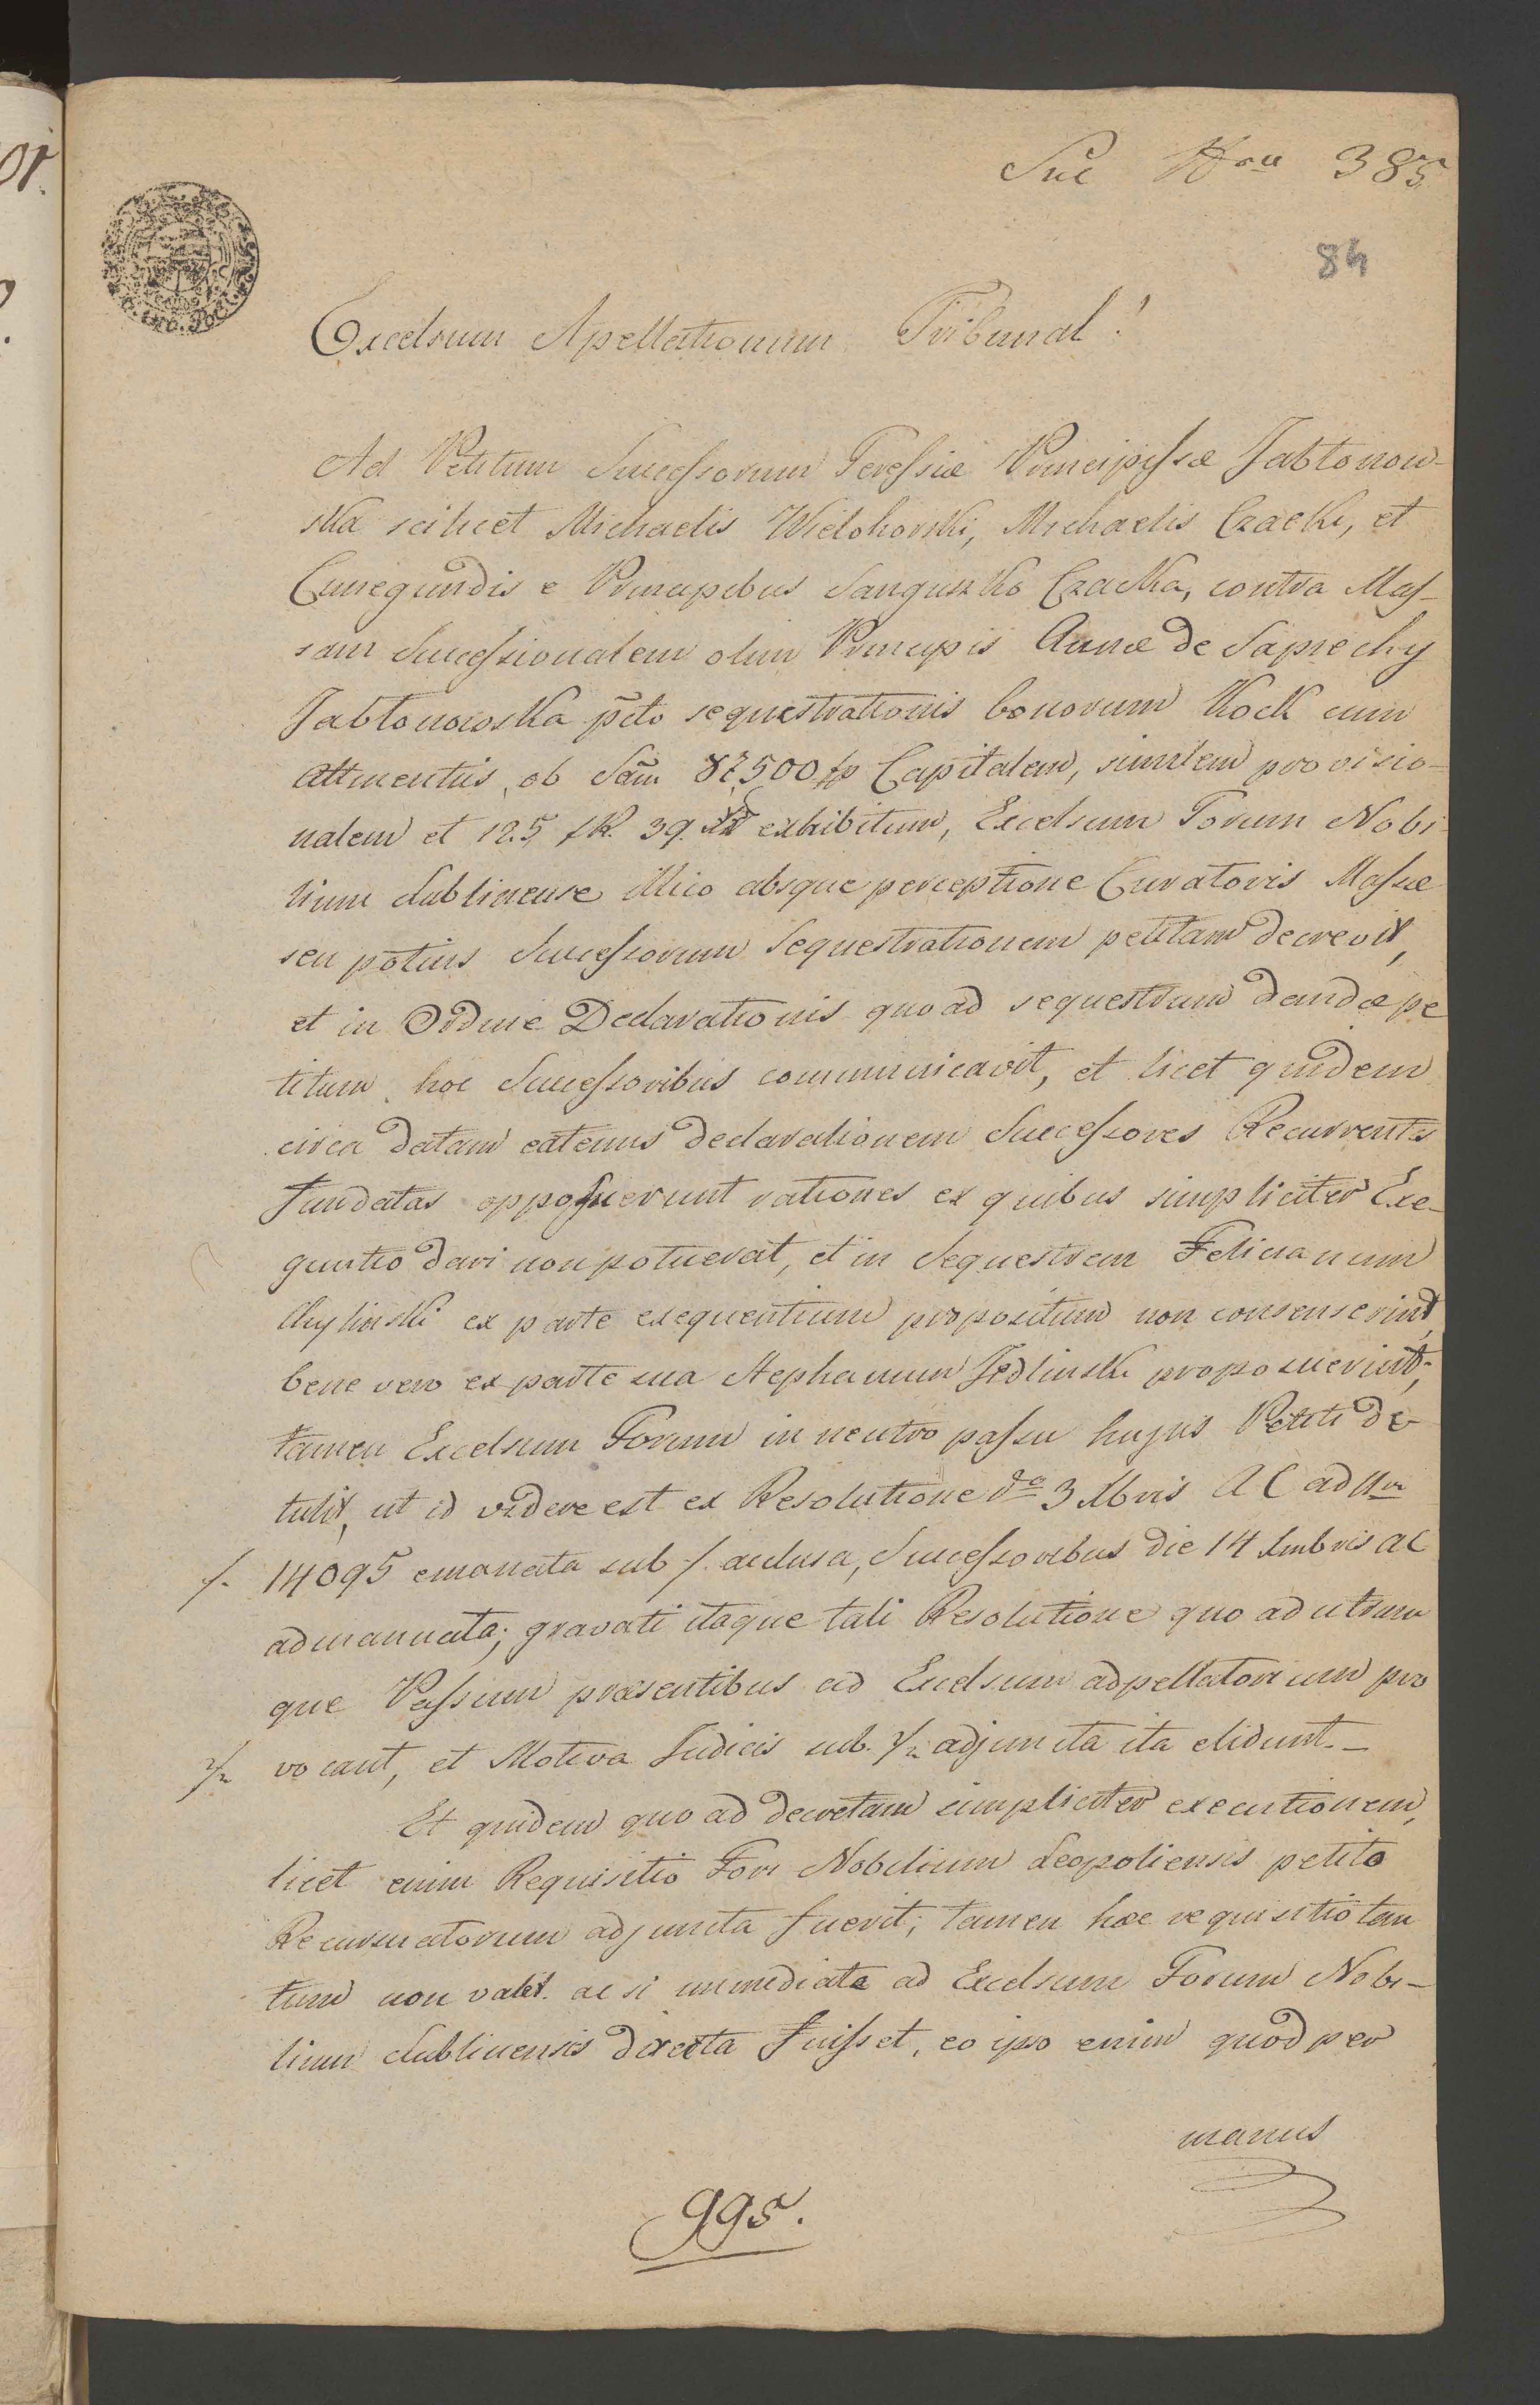 Suć Nro 385
84
Excelsum Apellationum Tribunal!
Ad Petitum Successorum Teressiæ Principissæ Jabłonow-
ska scilicet Michaelis Wielohorski, Michaelis Czacki, et
Cunegundis e Principibus Sanguszko Czacka, contra Mas-
sam Successionalem olim Principis Annæ de Sapiechy
Jabłonowska pcto sequestrationis bonorum Kock cum
attinentiis, ob Sam 87,500 fp Capitalem, similem provisio-
nalem et 125 fR. 39. xr exhibitum, Excelsum Forum Nobi-
lium Lublinense illico absque perceptione Curatoris Massæ
seu potius Successorum Sequestrationem petitam decrevit,
et in Ordine Declarationis quoad sequestrum dandæ pe
titum hoc Successoribus communicavit, et licet quidem
circa datam eatenus declarationem Successores Recurrentes
fundatas opposuerunt rationes ex quibus simpliciter Exe-
quutio dari non potuerat, et in Sequestrem Felicianum
Chyliński ex parte exequentium propositum non consenserint,
bene vero ex parte sua Stephanum Jedlinski proposuerint;
tamen Excelsum Forum in neutro passu hujus Petiti de-
tulit, ut id videre est ex Resolutione da 3 Xbris AC ad Nr
/. 14095 emanata sub /. acclusa, Successoribus die 14 Xmbris ac
admanuata; gravati itaque tali Resolutione quo ad utrum
que Passum præsentibus ad Excelsum adpellatorium pro
2/. vocant, et Motiva Judicis sub. 2/. adjuncta ita elidunt.-
Et quidem quo ad decretam simpliciter executionem,
licet enim Requisitio Fori Nobilium Leopoliensis petito
Recursuatorum adjuncta fuerit; tamen hæc requisitio tan
tum non valet. ac si immediate ad Excelsum Forum Nobi-
lium Lublinensis directa fuisset, eo ipso enim quod per
manus
995.